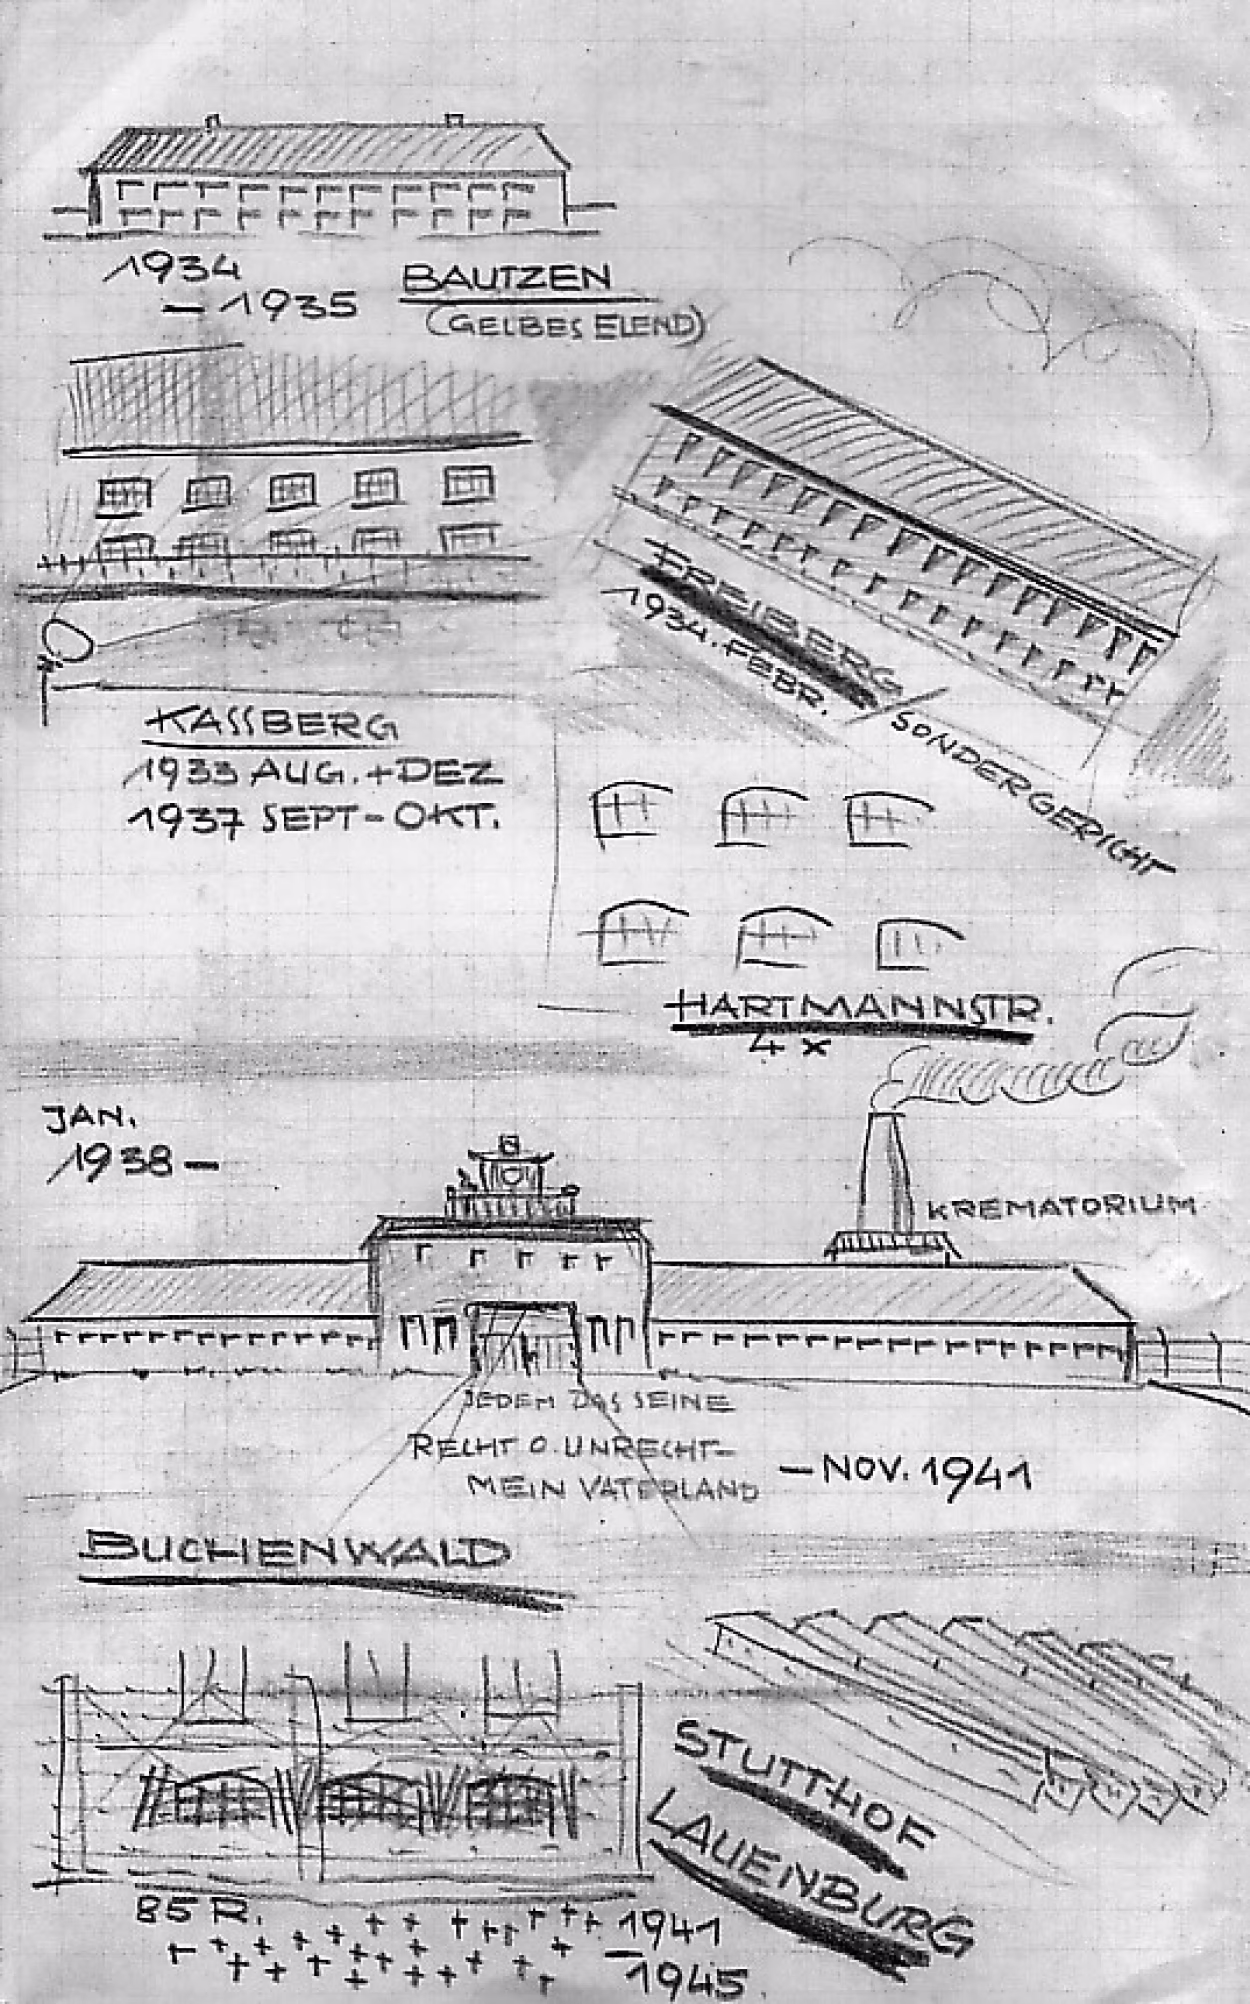 1934
– 1935
BAUTZEN
(GELBES ELEND)
FREIBERG / SONDERGERICHT
1934. FEBR.
KASSBERG
1933 AUG. + DEZ
1937 SEPT – OKT.
HARTMANNSTR.
4 x
JAN.
1938 –
KREMATORIUM
JEDEM DAS SEINE
RECHT O. UNRECHT –
MEIN VATERLAND
– NOV. 1941
BUCHENWALD
STUTTHOF
LAUENBURG
85 R.
1941
– 1945.